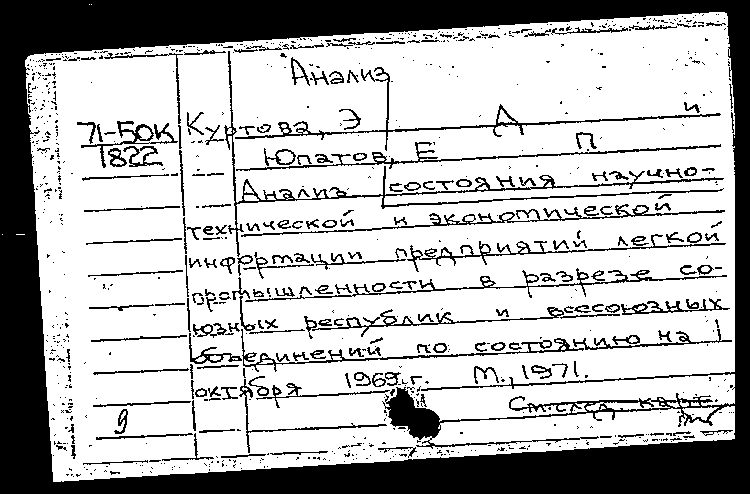 Анализ
71-БОК Куртова, Э А и
1822 Юпатов, Е П
Анализ состояния научно-
технической и экономической
информации предприятий легкой
промышленности в разрезе со-
юзных республик и всесоюзных
объединений по состоянию на 1
октября 1969 г. М., 1971.
См. след. карт.
9